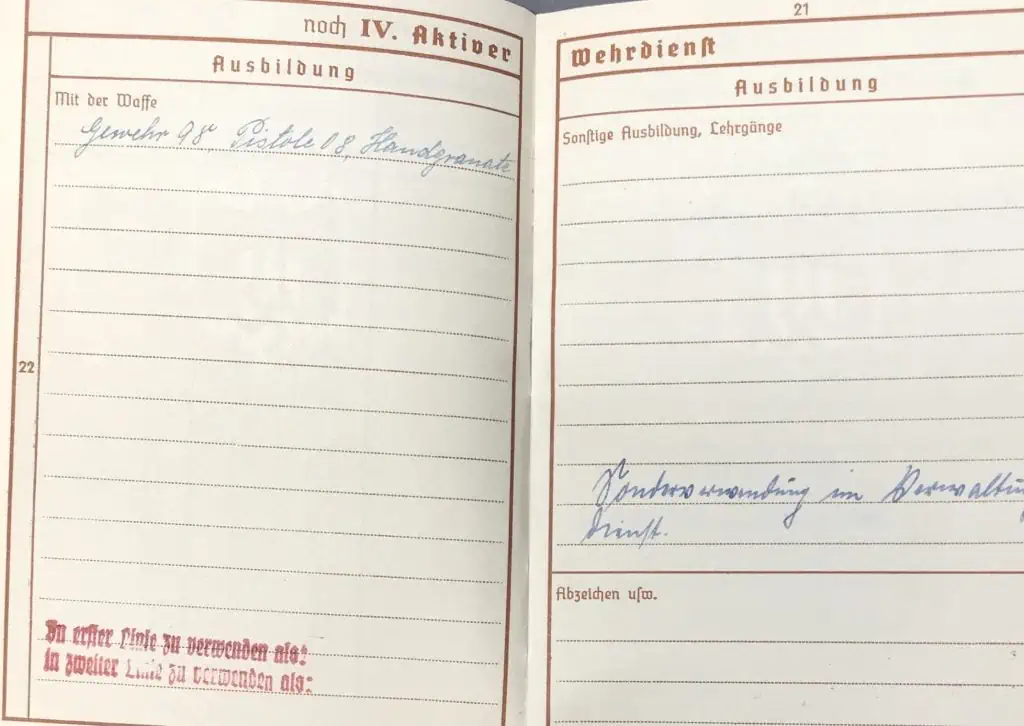 noch IV. Aktiver
Ausbildung
Mit der Waffe
Gewehr 98, Pistole 08, Handgranate
22
In erster Linie zu verwenden als:
In zweiter Linie zu verwenden als:
21
Wehrdienst
Ausbildung
Sonstige Ausbildung, Lehrgänge
Sonderverwendung im Verwaltung
dienst.
Abzeichen usw.